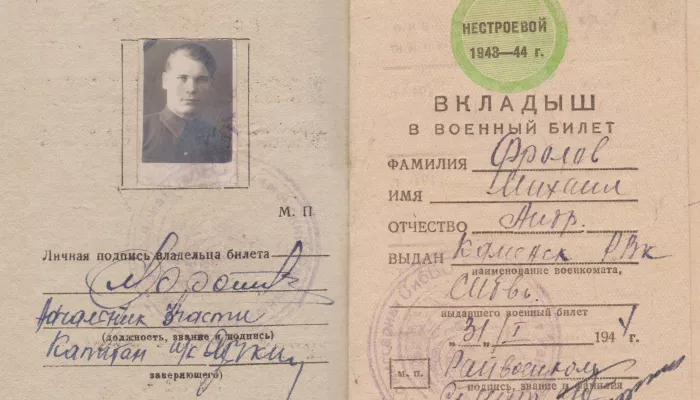 М. П
Личная подпись владельца билета
Начальник части
(должность, звание и подпись)
Капитан
заверяющего)
НЕСТРОЕВОЙ
1943—44 г.
ВКЛАДЫШ
В ВОЕННЫЙ БИЛЕТ
ФАМИЛИЯ Фролов
ИМЯ Михаил
ОТЧЕСТВО Андр.
ВЫДАН Каменск РВк
наименование военкомата,
СибВо
выдавшего военный билет
„31“ I 1944 г.
м. п. Райвоенком
подпись, звание и фамилия